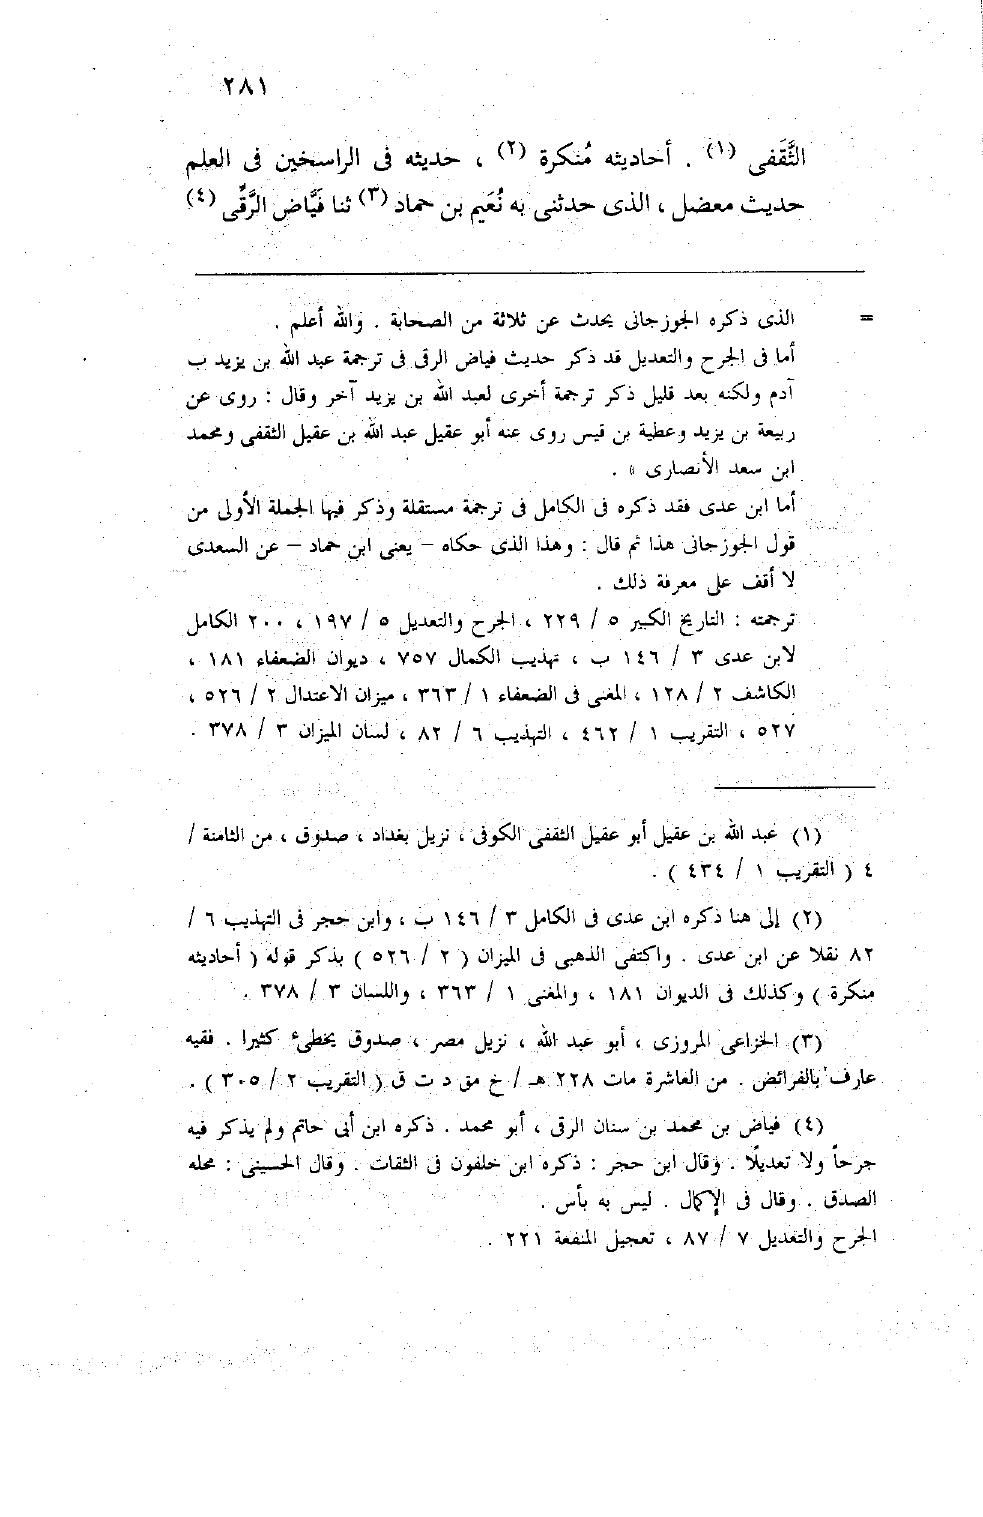 ٢٨١
الثَّقَفى (١) . أحاديثه مُنكرة (٢) ، حديثه فى الراسخين فى العلم
حديث معضل ، الذى حدثنى به نُعَيم بن حماد (٣) ثنا فَيَّاض الرَّقِّى (٤)
= الذى ذكره الجوزجانى يحدث عن ثلاثة من الصحابة . والله أعلم .
أما فى الجرح والتعديل قد ذكر حديث فياض الرقى فى ترجمة عبد الله بن يزيد ب
آدم ولكنه بعد قليل ذكر ترجمة أخرى لعبد الله بن يزيد آخر وقال : روى عن
ربيعة بن يزيد وعطية بن قيس روى عنه أبو عقيل عبد الله بن عقيل الثقفى ومحمد
ابن سعد الأنصارى » .
أما ابن عدى فقد ذكره فى الكامل فى ترجمة مستقلة وذكر فيها الجملة الأولى من
قول الجوزجانى هذا ثم قال : وهذا الذى حكاه – يعنى ابن حماد – عن السعدى
لا أقف على معرفة ذلك .
ترجمته : التاريخ الكبير ٥ / ٢٢٩ ، الجرح والتعديل ٥ / ١٩٧ ، ٢٠٠ الكامل
لابن عدى ٣ / ١٤٦ ب ، تهذيب الكمال ٧٥٧ ، ديوان الضعفاء ١٨١ ،
الكاشف ٢ / ١٢٨ ، المغنى فى الضعفاء ١ / ٣٦٣ ، ميزان الاعتدال ٢ / ٥٢٦ ،
٥٢٧ ، التقريب ١ / ٤٦٢ ، التهذيب ٦ / ٨٢ ، لسان الميزان ٣ / ٣٧٨ .
(١) عبد الله بن عقيل أبو عقيل الثقفى الكوفى ، نزيل بغداد ، صدوق ، من الثامنة /
٤ ( التقريب ١ / ٤٣٤ ) .
(٢) إلى هنا ذكره ابن عدى فى الكامل ٣ / ١٤٦ ب ، وابن حجر فى التهذيب ٦ /
٨٢ نقلا عن ابن عدى . واكتفى الذهبى فى الميزان ( ٢ / ٥٢٦ ) بذكر قوله ( أحاديثه
منكرة ) وكذلك فى الديوان ١٨١ ، والمغنى ١ / ٣٦٣ ، واللسان ٣ / ٣٧٨ .
(٣) الخزاعى المروزى ، أبو عبد الله ، نزيل مصر ، صدوق يخطئ كثيرا . فقيه
عارف بالفرائض . من العاشرة مات ٢٢٨ هـ / خ مق د ت ق ( التقريب ٢ / ٣٠٥ ) .
(٤) فياض بن محمد بن سنان الرقى ، أبو محمد . ذكره ابن أبى حاتم ولم يذكر فيه
جرحاً ولا تعديلًا . وقال ابن حجر : ذكره ابن خلفون فى الثقات . وقال الحسينى : محله
الصدق . وقال فى الإكمال . ليس به بأس .
الجرح والتعديل ٧ / ٨٧ ، تعجيل المنفعة ٢٢١ .